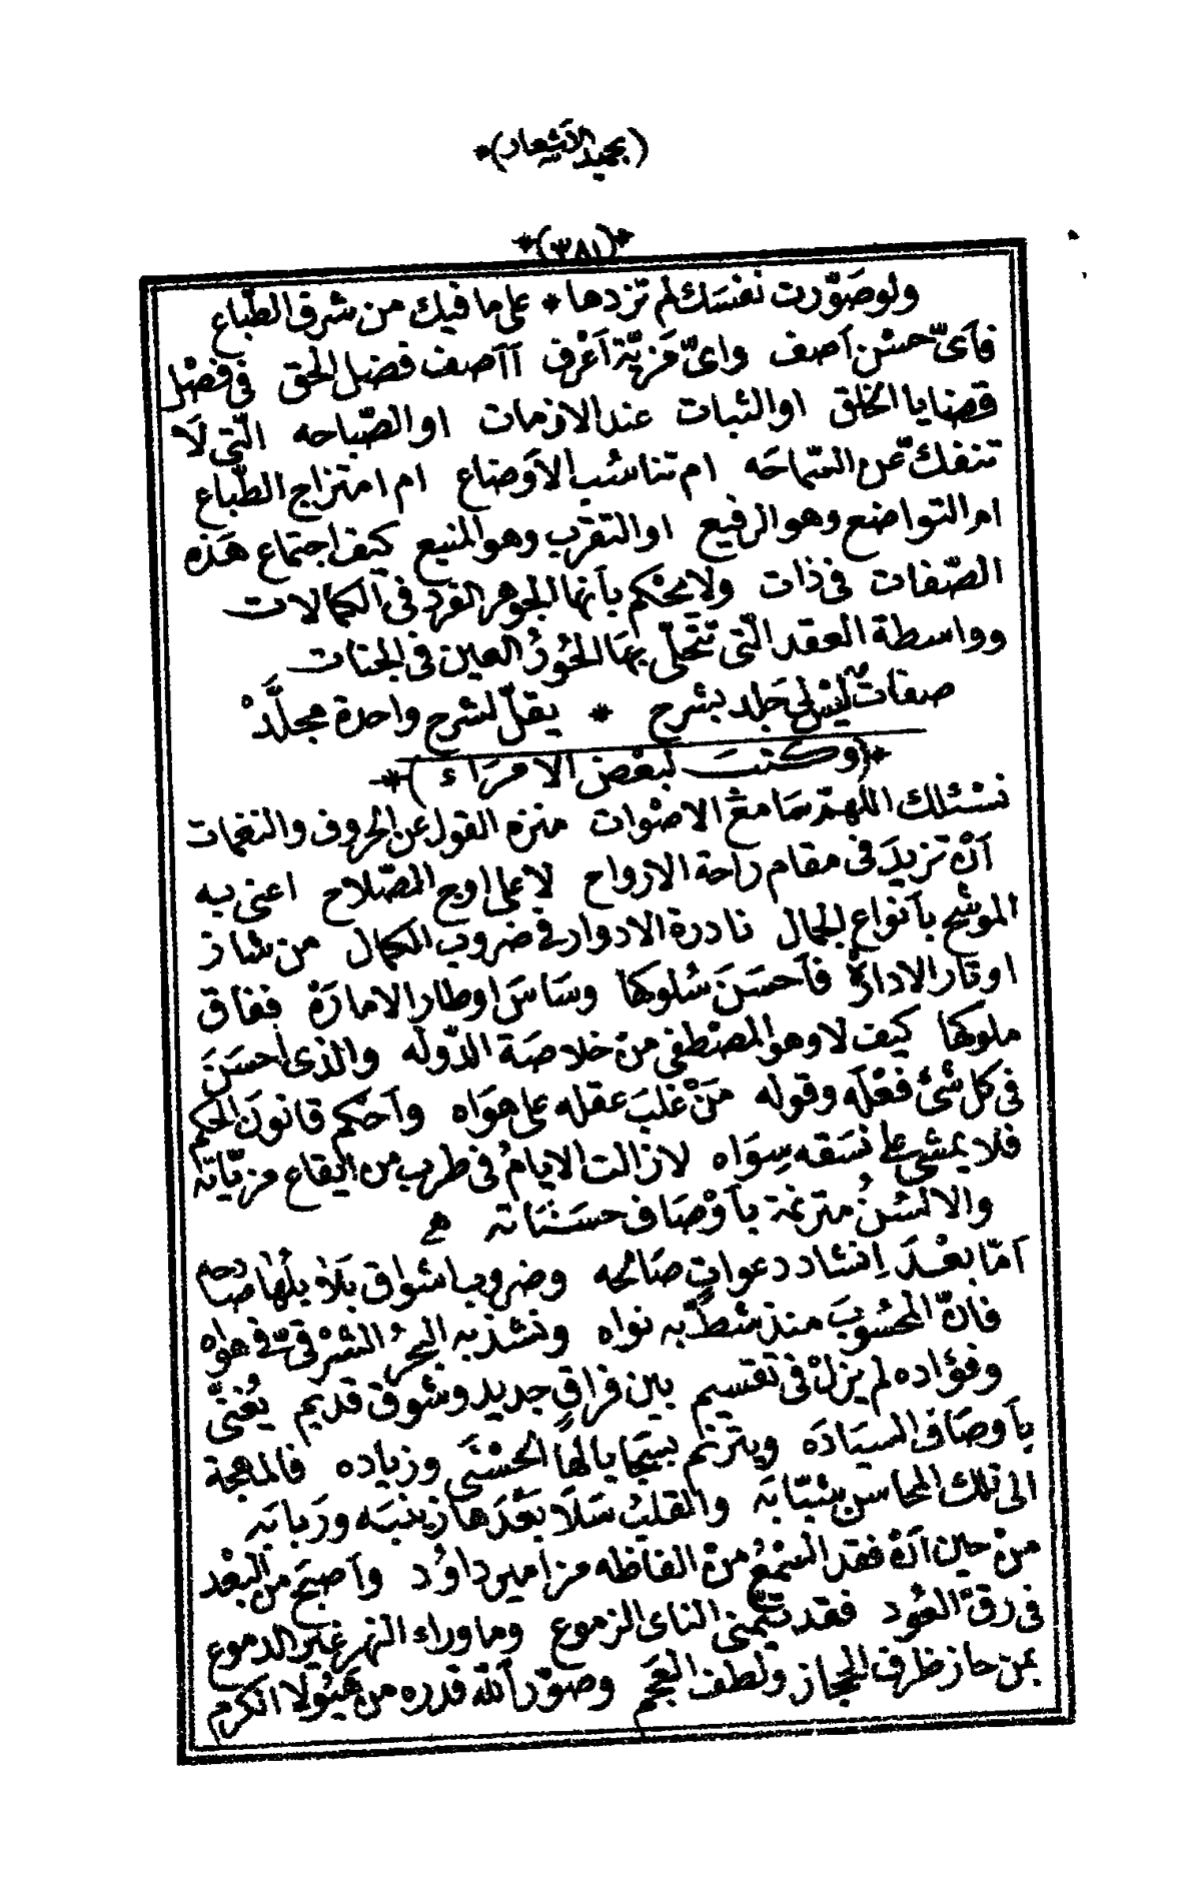 (بحميد الاشعار)*
*(٣٨١)*
ولو صَوّرت نفسَك لم تزدها * على ما فيك من شرف الطّباع
فأىّ حسْن آصف وأىّ مزيّة أعْرف أآصف فضل الحق فى فصْل
قضايا الخلق او الثبات عند الازمات او الصّباحه الّتى لَا
تنفكّ عن السّماحَه ام تناسُب الأوضاع ام امتزاج الطّباع
ام التواضع وهو الرفيع او التقرب وهو المنيع كيف اجتماع هَذه
الصّفات فى ذات ولا يحْكم بأنها الجوهر الفرد فى الكمالات
وواسطة العقد الّتى تتحلّى بهَا الحُورُ العين فى الجنات
صفاتٌ ليْس لى جَلد بشرح * يقلّ لشرح واحدة مجلَّدْ
*(وكتبتَ لبَعْض الامرَاء)*
نسْئلك اللهمّ سَامعَ الاصْوات منزه القول عن الحروف والنغمات
أنْ تزيدَ فى مقام راحة الارواح لاعلى اوج الصّلاح اعنى به
الموشح بأنواع الجمال نادرة الادوار فى ضروب الكمال من شاز
اوتار الادارةْ فأحسَنَ سُلوكها وسَاسَ اوطار الامارَةْ ففاق
ملوكها كيف لا وهو المصْطفى منْ خلاصَة الدّولَه والذى أحسَنَ
فى كل شئ فعْلَه وقوله مَنْ غلبَ عقله على هوَاه وأحْكم قانونَ الحكم
فلا يمشى على نسَقه سِوَاه لا زالت الايامُ فى طرب من ايقاع مزيّاته
والالسُنُ مترنمة بأوْصَاف حسَنَاته
أمّا بعْدَ اِنشاد دعواتٍ صَالحه وضروب اشواق بَلَابلُها صَادحه
فانّ المحْسُوبَ منذ شطّ به نواه ونشذ به البحرُ الشرْقىّ فى هواه
وفؤاده لم يزلْ فى تقسيم بين فراقٍ جديد وشوق قديم يُغنّى
بأوصَاف السيَادَه ويترنم بسَجايا لهَا الحُسْنَى وزياده فالمهجة
الى تلك المحاسن شبّابَه والقلبُ سَلَا بَعْدَها زينبَه ورَبابَه
منْ حين أنْ فقد السّمْعُ منْ الفاظه مزامير داوُد وأصبَح من البعْد
فى رقّ العُود فقد تمنى الناى الزموع وما وراء النهر غير الدموع
بمن حاز ظرف الحجاز ولطف العَجم وصوّر اللّه قدره من هَيُولَا الكرم